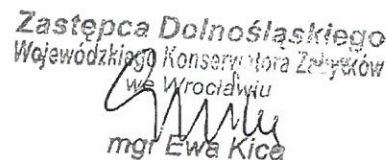 Zastępca Dolnośląskiego
Wojewódzkiego Konserwatora Zabytków
we Wrocławiu
mgr Ewa Kica